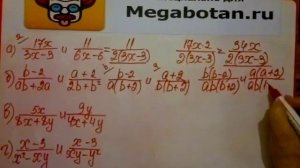 Megabotan.ru
а) 17x/(3x-3) и 11/(6x-6) 11/2(3x-3) 17x·2/2(3x-3) = 34x/2(3x-3)
б) (b-2)/(ab+2a) и (a+2)/(2b+b²) (b-2)/a(b+2) и (a+2)/b(b+2) b(b-2)/ab(b+2) и a(a+2)/ab(
в) 5x/(8x+8y) и 9y/(4x+4y)
г) (x-3)/xy и (x-3)/(xy-y²)